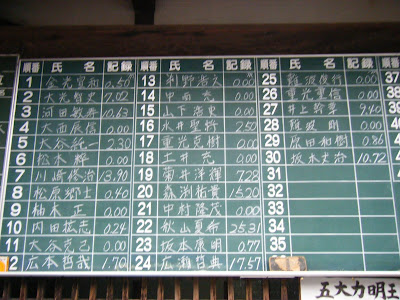 順番 氏名 記録 順番 氏名 記録 順番 氏名 記録
1 金光宣和 0.50 13 0.00 25 難波俊行 0.00
2 大元智史 7.02 14 0.00 26 重光重信 0.00
3 河田敏寿 10.43 15 山下彦史 0.00 27 井上幹章 9.40
4 大西辰信 0.00 16 永井聖将 2.50 28 難波剛 0.00
5 大谷純一 2.30 17 重光克樹 0.00 29 原田和樹 0.86
6 松本輝 0.00 18 土井充 0.00 30 坂本史治 10.72
7 川崎修治 13.90 19 菊井洋輝 7.28 31
8 松原郷士 0.40 20 森渕祐貴 15.20 32
9 柚木正 0.00 21 中村隆茂 0.00 33
10 内田拡志 0.24 22 秋山夏希 25.31 34
11 大谷克己 0.00 23 坂本康明 0.77 35
2 広本哲哉 1.70 24 広瀬哲典 17.57
37
38
39
40
41
42
43
44
45
46
47
五大力明王